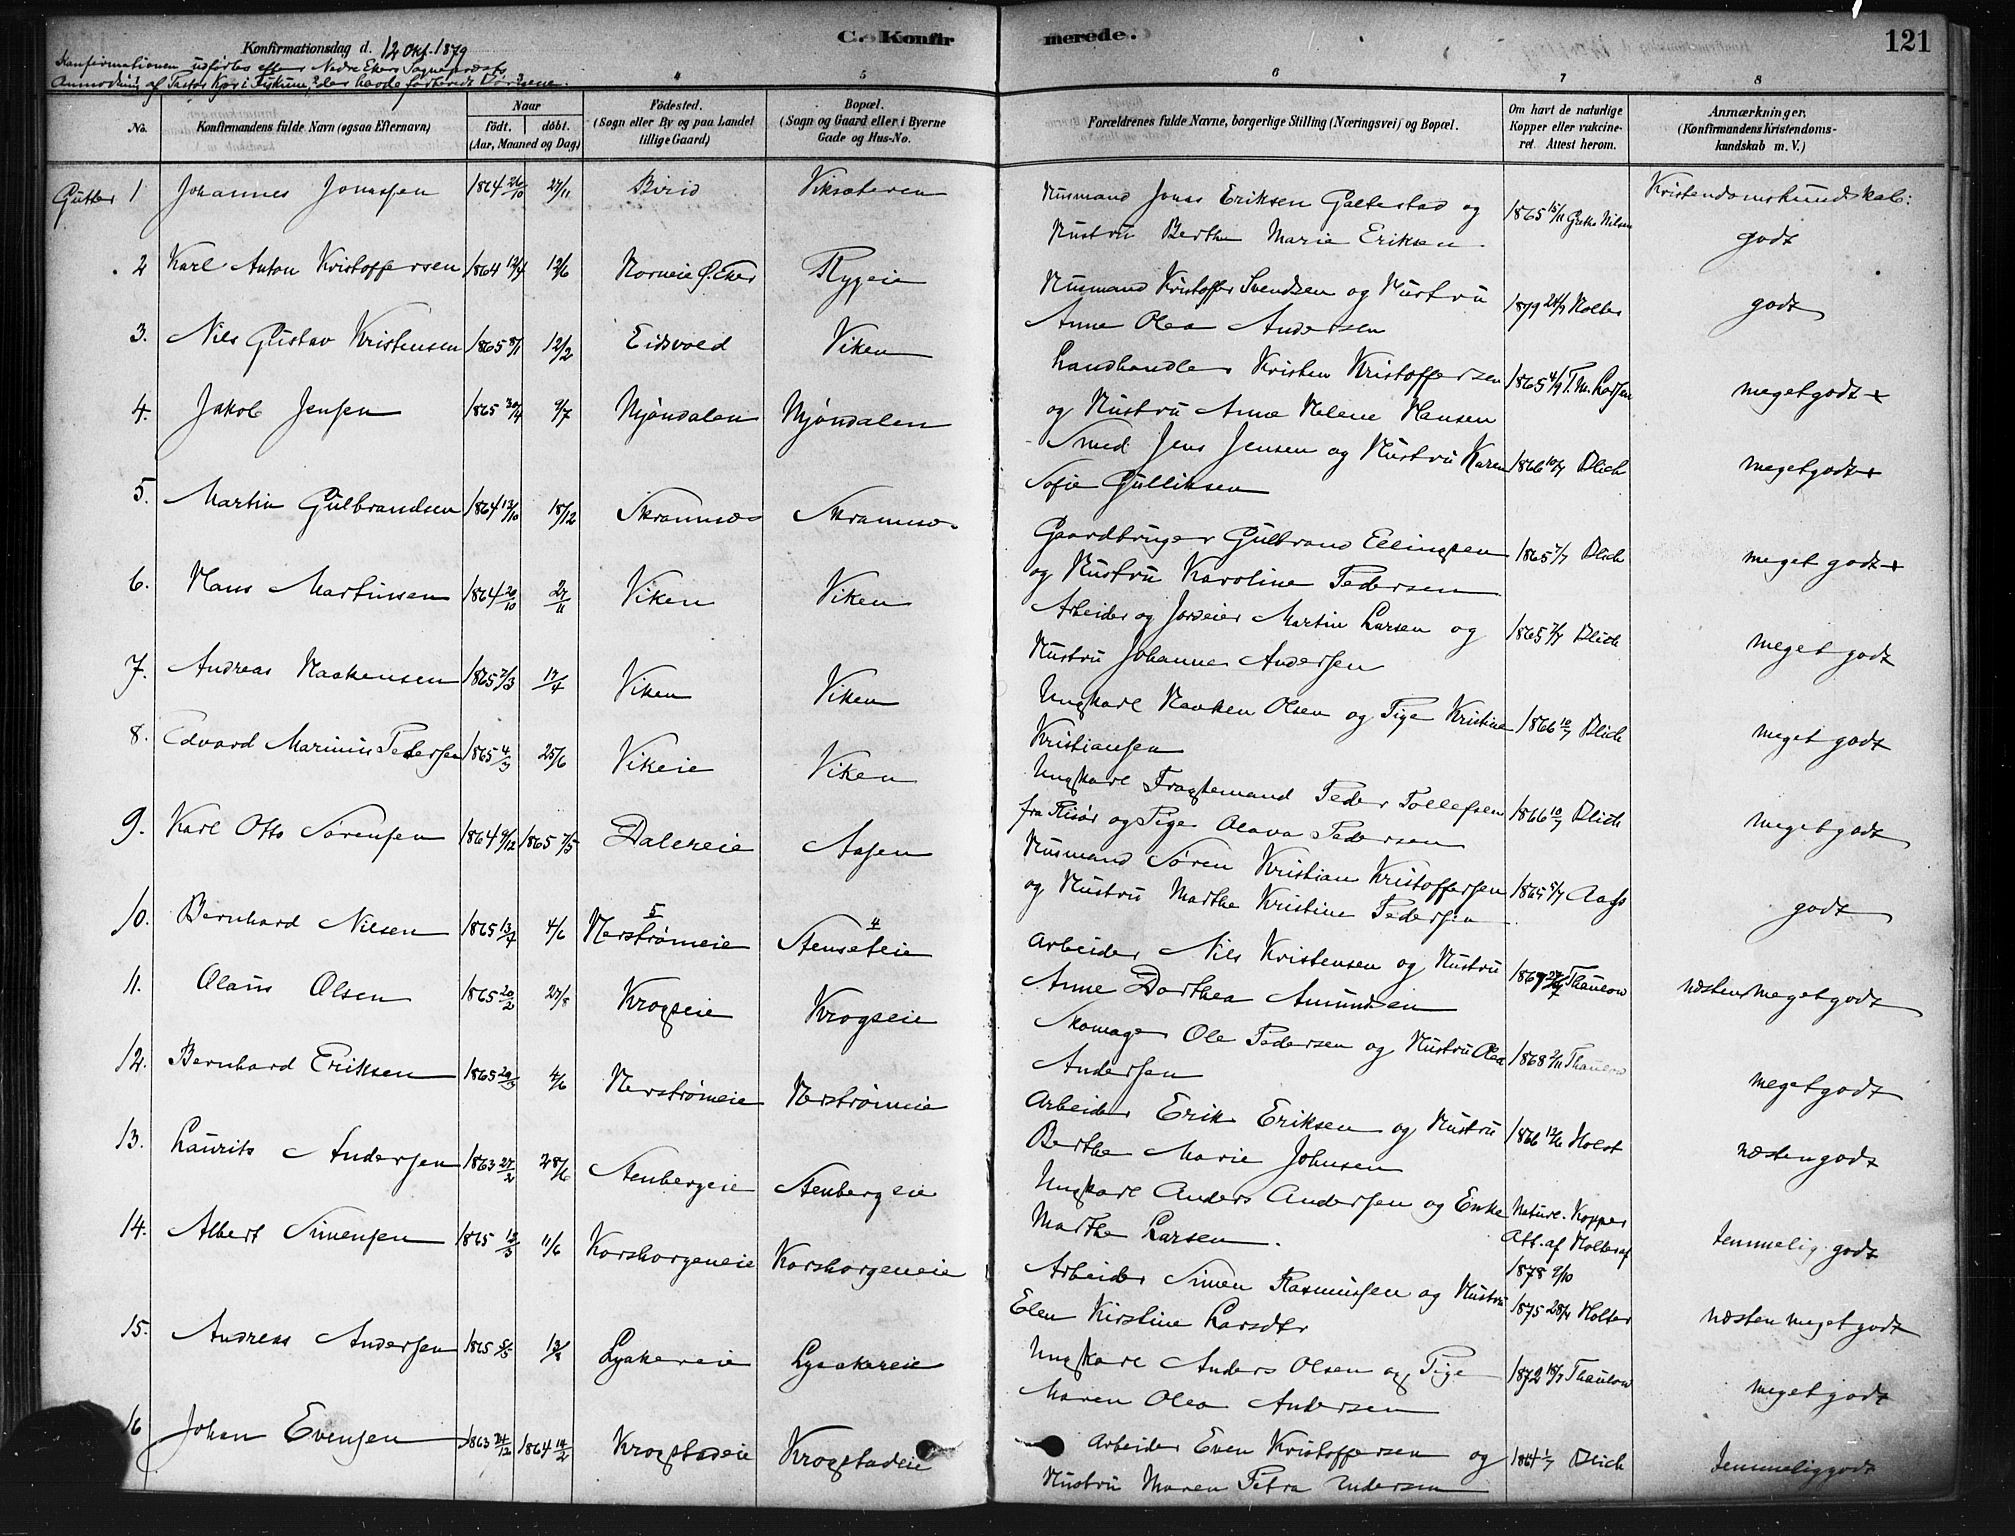 C. Konfirmerede.
121
Konfirmationsdag d. 12 Okt. 1879
Konfirmationen udførtes efter Nedre Ekers Sogneprests
Anmodning af Pastor Kjær i Fiskum, der havde forberedt Børnene.
4 5 6 7 8
No. Konfirmandens fulde Navn (ogsaa Efternavn) Naar født. døbt. (Aar, Maaned og Dag) Fødested. (Sogn eller By og paa Landet tillige Gaard) Bopæl. (Sogn og Gaard eller i Byerne Gade og Hus-No. Forældrenes fulde Navne, borgerlige Stilling (Næringsvei) og Bopæl. Om havt de naturlige Kopper eller vakcineret. Attest herom. Anmærkninger. (Konfirmandens Kristendomskundskab m. V.)
Gutter 1 Johannes Jonassen 1864 26/10 27/11 Birid Viksæteren Husmand Jonas Eriksen Galtestad og 1865 15/11 Nilsen Kristendomskundskab:
Hustru Berthe Marie Eriksen godt
2 Karl Anton Kristoffersen 1864 12/4 12/6 Horneie Ø. Eker Rygeie Husmand Kristoffer Svendsen og Hustru 1879 24/9 Holter godt
Anne Olea Andersen
3. Nils Gustav Kristensen 1865 8/1 12/2 Eidsvold Viken Landhandler Kristen Kristoffersen 1865 4/9 T. M. Larsen meget godt +
og Hustru Anne Helene Hansen
4. Jakob Jensen 1865 30/4 9/7 Mjøndalen Mjøndalen Smed Jens Jensen og Hustru Karen 1866 10/7 Blich meget godt +
Sofie Gulliksen
5. Martin Gulbrandsen 1864 13/10 18/12 Skramsø Skramsø Gaardbruger Gulbrand Ellingsen 1865 7/7 Blich meget godt +
og Hustru Karoline Pedersen
6. Hans Martinsen 1864 20/10 27/11 Viken Viken Arbeider og Jordeier Martin Larsen og 1865 7/7 Blich meget godt
Hustru Johanne Andersen
7. Andreas Haakensen 1865 7/3 17/4 Viken Viken Ungkarl Haaken Olsen og Pige Kristine 1866 10/7 Blich meget godt
Kristiansen
8. Edvard Marinius Pedersen 1865 4/3 25/6 Vikeie Viken Ungkarl Fragtemand Peder Tollefsen 1866 10/7 Blich meget godt
fra Risør og Pige Olava Pedersen
9. Karl Otto Sørensen 1864 9/12 1865 7/5 Dalereie Aasen Husmand Søren Kristian Kristoffersen 1865 5/7 Aass godt
og Hustru Marthe Kristine Pedersen
10. Bernhard Nilsen 1865 13/4 4/6 Nerstrømeie Stenseteie Arbeider Nils Kristensen og Hustru 1867 Thaulow næsten meget godt
5 4 Anne Dorthea Amundsen
11. Olaus Olsen 1865 20/2 27/8 Krogseie Krogseie Skomager Ole Pedersen og Hustru Olea 1868 2/11 Thaulow meget godt
Andersen
12. Bernhard Eriksen 1865 29/3 4/6 Nerstrømeie Nerstrømeie Arbeider Erik Eriksen og Hustru 1866 12/6 Holst næsten godt
Berthe Marie Johnsen
13. Laurits Andersen 1863 27/2 28/6 Stenbergeie Stenbergeie Ungkarl Anders Andersen og Enke Naturl. Kopper temmelig godt
Marthe Larsen. Att. af Holter af
1878 9/10
14. Albert Simensen 1865 13/3 11/6 Korshorgeneie Korshorgeneie Arbeider Simen Rasmussen og Hustru 1875 28/4 Holter næsten meget godt
Elen Kirstine Larsdtr
15. Andreas Andersen 1865 5/5 13/8 Lyakereie Lyaakereie Ungkarl Anders Olsen og Pige 1872 18/7 Thaulow meget godt
Maren Olea Andersen
16 Johan Evensen 1863 24/12 1864 14/2 Krogstadeie Krogstadeie Arbeider Even Kristoffersen og 1864 1/7 Blich temmelig godt
Hustru Maren Petra Andersen